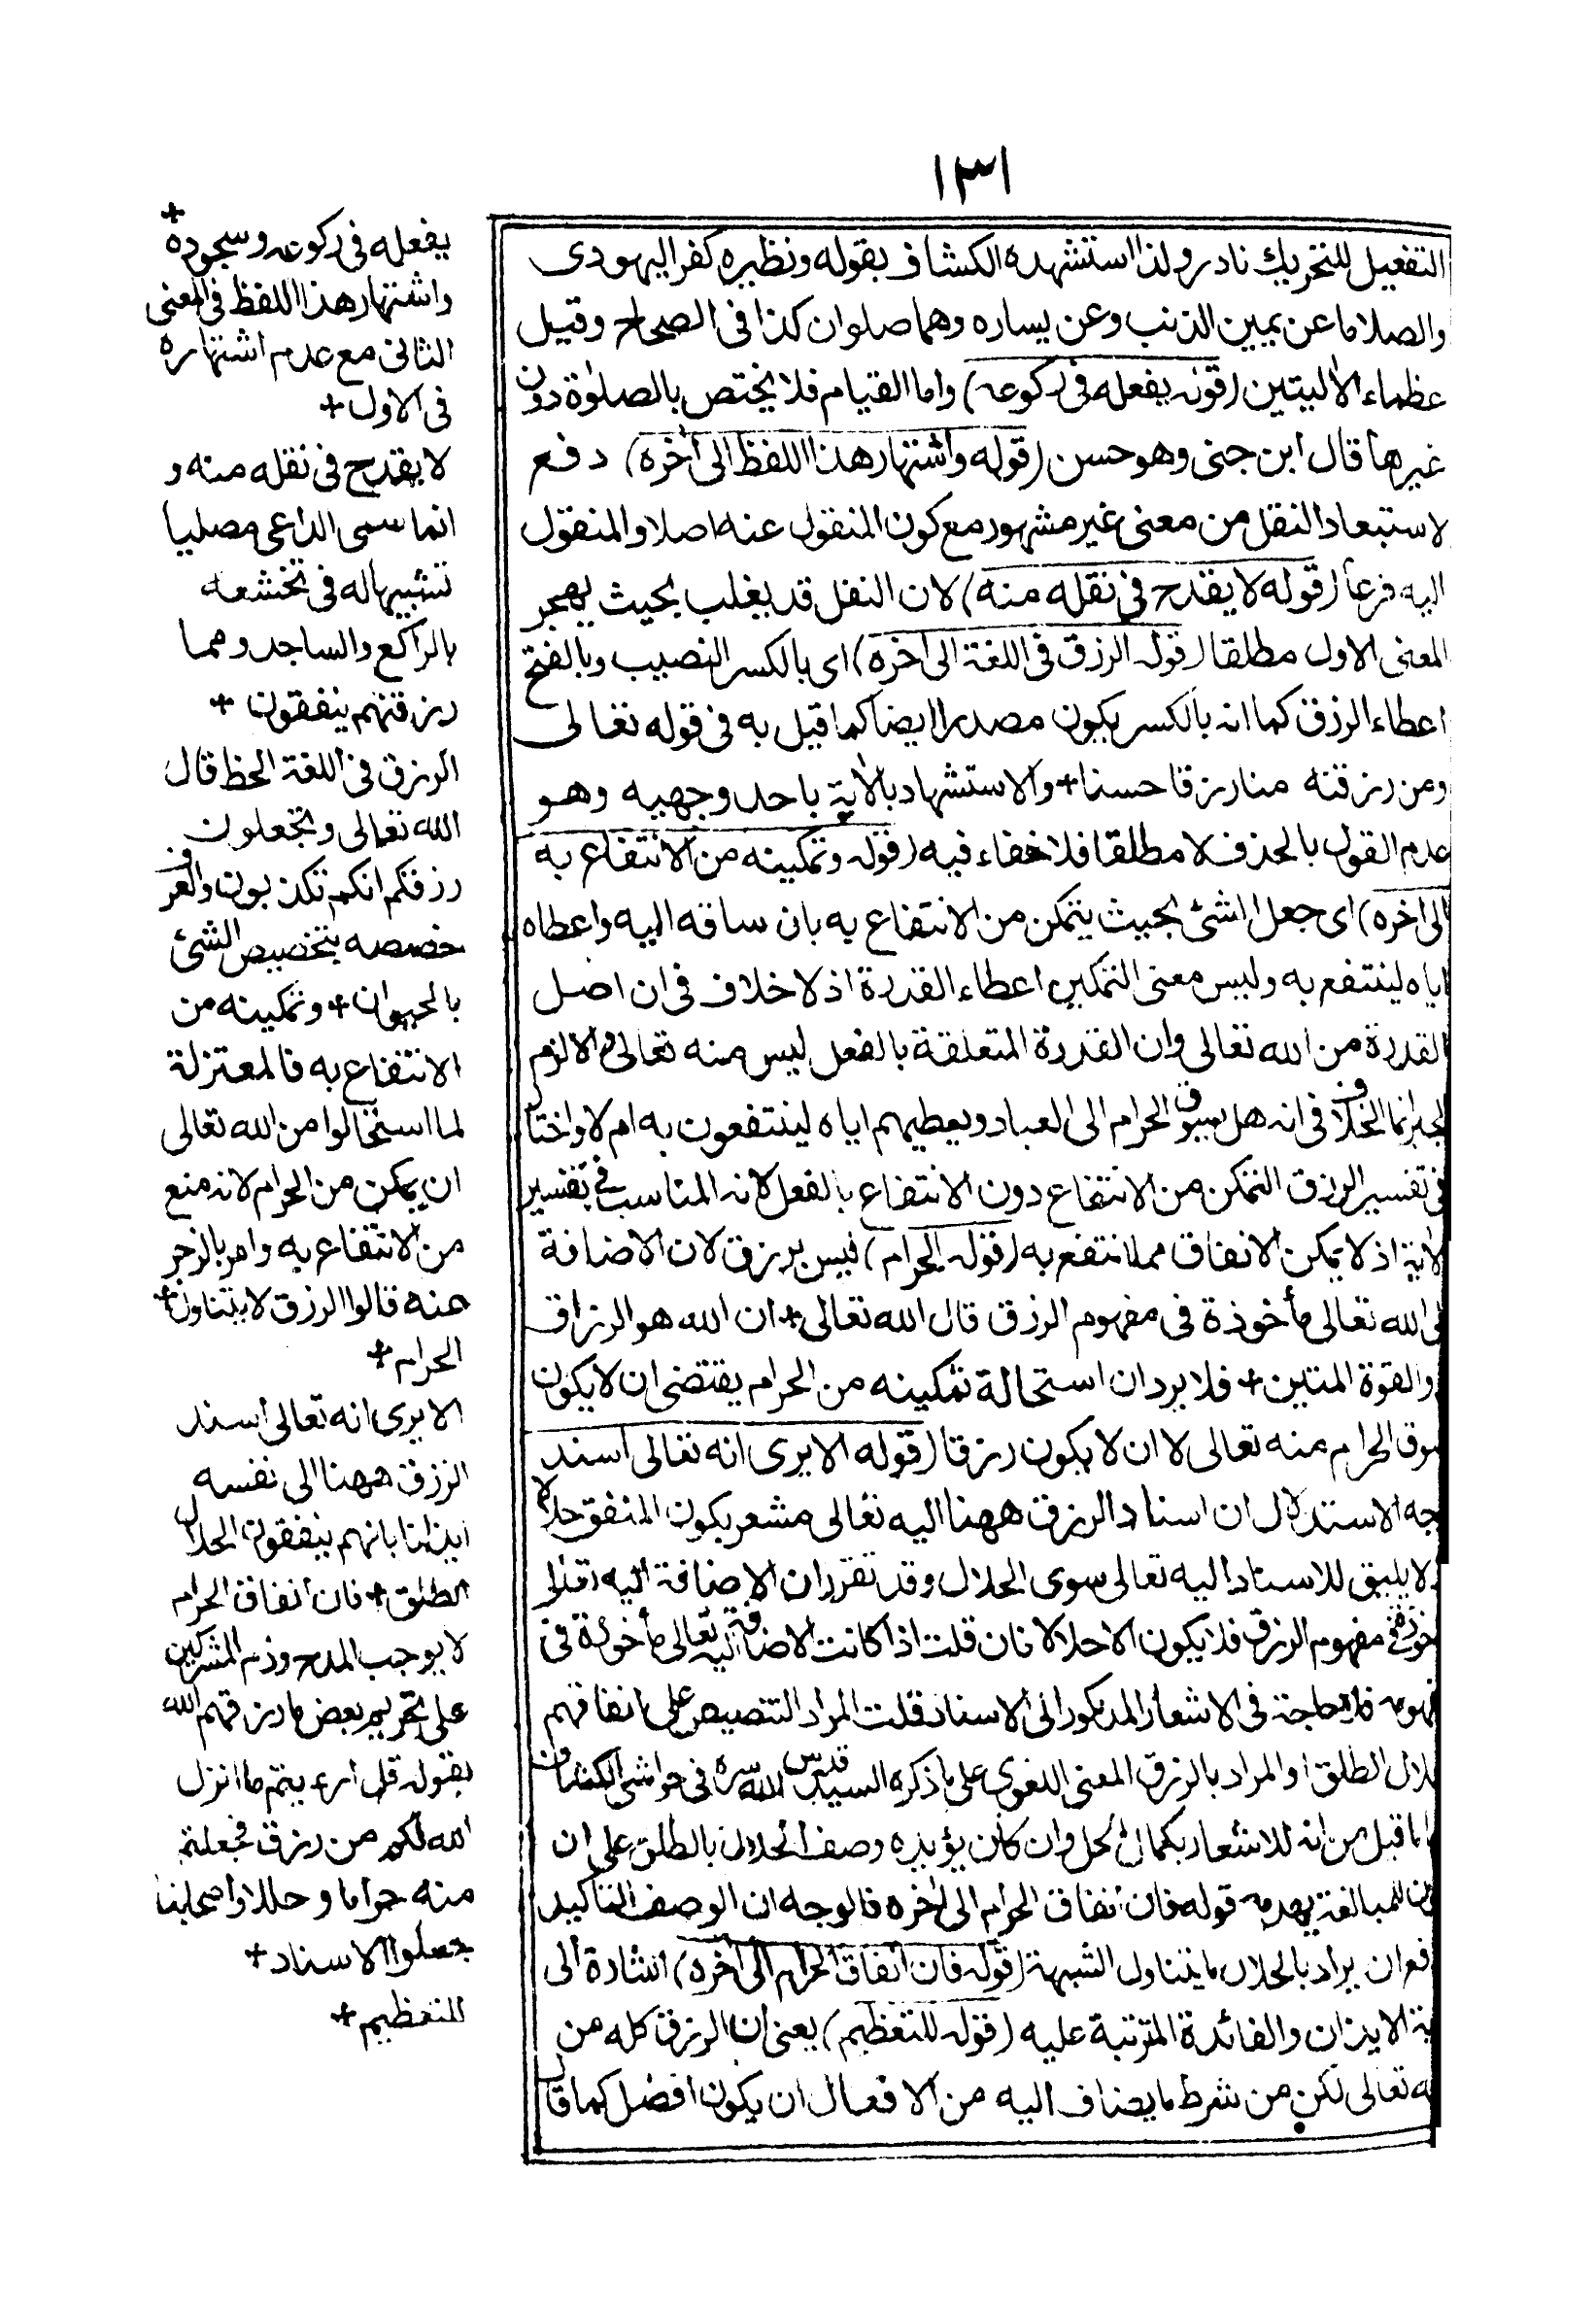 ١٣١
التفعيل للتحريك نادر ولذا استشهده الكشاف بقوله ونظيره كفر اليهودى
والصلا ما عن يمين الذنب وعن يساره وهما صلوان كذا فى الصحاح وقيل
عظماء الاليتين (قوله يفعله فى ركوعه) واما القيام فلا يختص بالصلوة دون
غيرها قال ابن جنى وهو حسن (قوله واشتهار هذا اللفظ الى اخره) دفع
لاستبعاد النقل من معنى غير مشهور مع كون المنقول عنه اصلا والمنقول
اليه فرعا (قوله لا يقدح فى نقله منه) لان النقل قد يغلب بحيث يهجر
المعنى الاول مطلقا (قوله الرزق فى اللغة الى اخره) اى بالكسر النصيب وبالفتح
اعطاء الرزق كما انه بالكسر يكون مصدرا ايضا كما قيل به فى قوله تعالى
ومن رزقنه منا رزقا حسنا+ والاستشهاد بالاية باحد وجهيه وهو
عدم القول بالحذف لا مطلقا فلا خفاء فيه (قوله وتمكينه من الانتفاع به
الى اخره) اى جعل الشئ بحيث يتمكن من الانتفاع به بان ساقه اليه واعطاه
اياه لينتفع به وليس معنى التمكين اعطاء القدرة اذ لا خلاف فى ان اصل
القدرة من الله تعالى وان القدرة المتعلقة بالفعل ليس منه تعالى والا لزم
الجبر انما الخلاف فى انه هل يسوق الحرام الى العباد ويعطيهم اياه لينتفعون به ام لا واختار
فى تفسير الرزق التمكن من الانتفاع دون الانتفاع بالفعل لانه المناسب فى تفسير
الاية اذ لا يمكن الانفاق مما انتفع به (قوله الحرام) ليس برزق لان الاضافة
الى الله تعالى مأخوذة فى مفهوم الرزق قال الله تعالى+ ان الله هو الرزاق
ذو القوة المتين+ فلا يرد ان استحالة تمكينه من الحرام يقتضى ان لا يكون
سوق الحرام منه تعالى لا ان لا يكون رزقا (قوله الا يرى انه تعالى اسند
وجه الاستدلال ان اسناد الرزق ههنا اليه تعالى مشعر بكون المنفق حلالا
ولا يليق للاسناد اليه تعالى سوى الحلال وقد تقرر ان الاضافة اليه تعالى
مأخوذة فى مفهوم الرزق فلا يكون الا حلالا فان قلت اذا كانت الاضافة اليه تعالى مأخوذة فى
مفهومه فلا حاجة فى الاشعار المذكور الى الاسناد قلت المراد التنصيص على انفاقهم
الحلال الطلق او المراد بالرزق المعنى اللغوى على ما ذكره السيد قدس الله سره فى حواشى الكشاف
واما قيل من انه للاشعار بكمال الحل وان كان يؤيده وصف الحلال بالطلق على ان
يكون للمبالغة يهدمه قوله فان انفاق الحرام الى اخره فالوجه ان الوصف للتأكيد
ودفع ان يراد بالحلال ما يتناول الشبهة (قوله فان انفاق الحرام الى اخره) اشارة الى
الايذان والفائدة المترتبة عليه (قوله للتعظيم) يعنى ان الرزق كله من
الله تعالى لكن من شرط ما يضاف اليه من الافعال ان يكون افضل كما قال
يفعله فى ركوعه وسجوده+
واشتهار هذا اللفظ فى المعنى
الثانى مع عدم اشتهاره
فى الاول+
لا يقدح فى نقله منه و
انما سمى الداعى مصليا
تشبيها له فى تخشعه
بالراكع والساجد ومما
رزقنهم ينفقون+
الرزق فى اللغة الحظ قال
الله تعالى وتجعلون
رزقكم انكم تكذبون والعرف
خصصه بتخصيص الشئ
بالحيوان+ وتمكينه من
الانتفاع به فالمعتزلة
لما استحالوا من الله تعالى
ان يمكن من الحرام لانه منع
من الانتفاع به وامر بالزجر
عنه قالوا الرزق لا يتناول+
الحرام+
الا يرى انه تعالى اسند
الرزق ههنا الى نفسه
ايذانا بانهم ينفقون الحلال
الطلق+ فان انفاق الحرام
لا يوجب المدح وذم المشركين
على تحريم بعض ما رزقهم الله
بقوله قل ارءيتم ما انزل
الله لكم من رزق فجعلتم
منه حراما وحللا واصحابنا
جعلوا الاسناد+
للتعظيم+